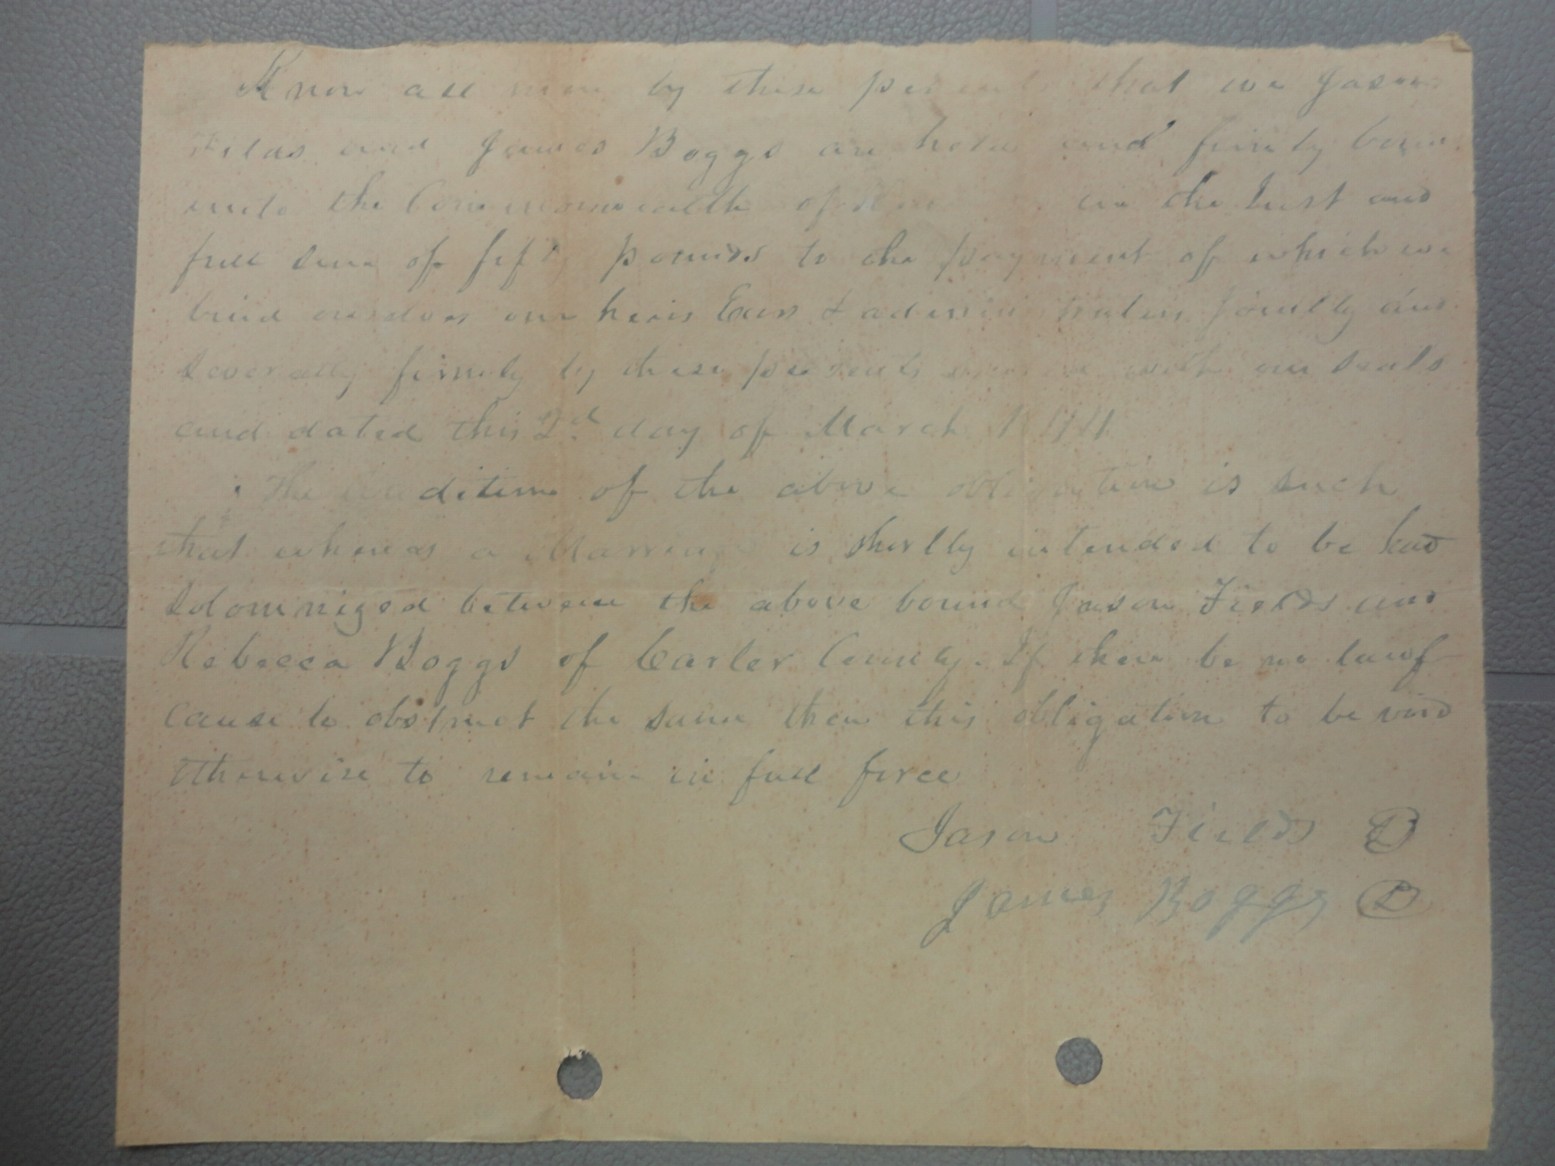 Know all men by these presents that we Jason
Fields and James Boggs are held and firmly boun
unto the Commonwealth of in the Just and
full sum of fifty pounds to the payment of which we
bind ourselves our heirs Exrs & administrators Jointly and
severally firmly by these presents with our seals
and dated this 2d day of March
The condition of the above obligation is such
that whereas a Marriage is shortly intended to be had
Solomnized between the above bound Jason Fields and
Rebecca Boggs of Carter County. If there be no lawf
cause to obstruct the same then this obligation to be void
otherwise to remain in full force
Jason Fields
James Boggs